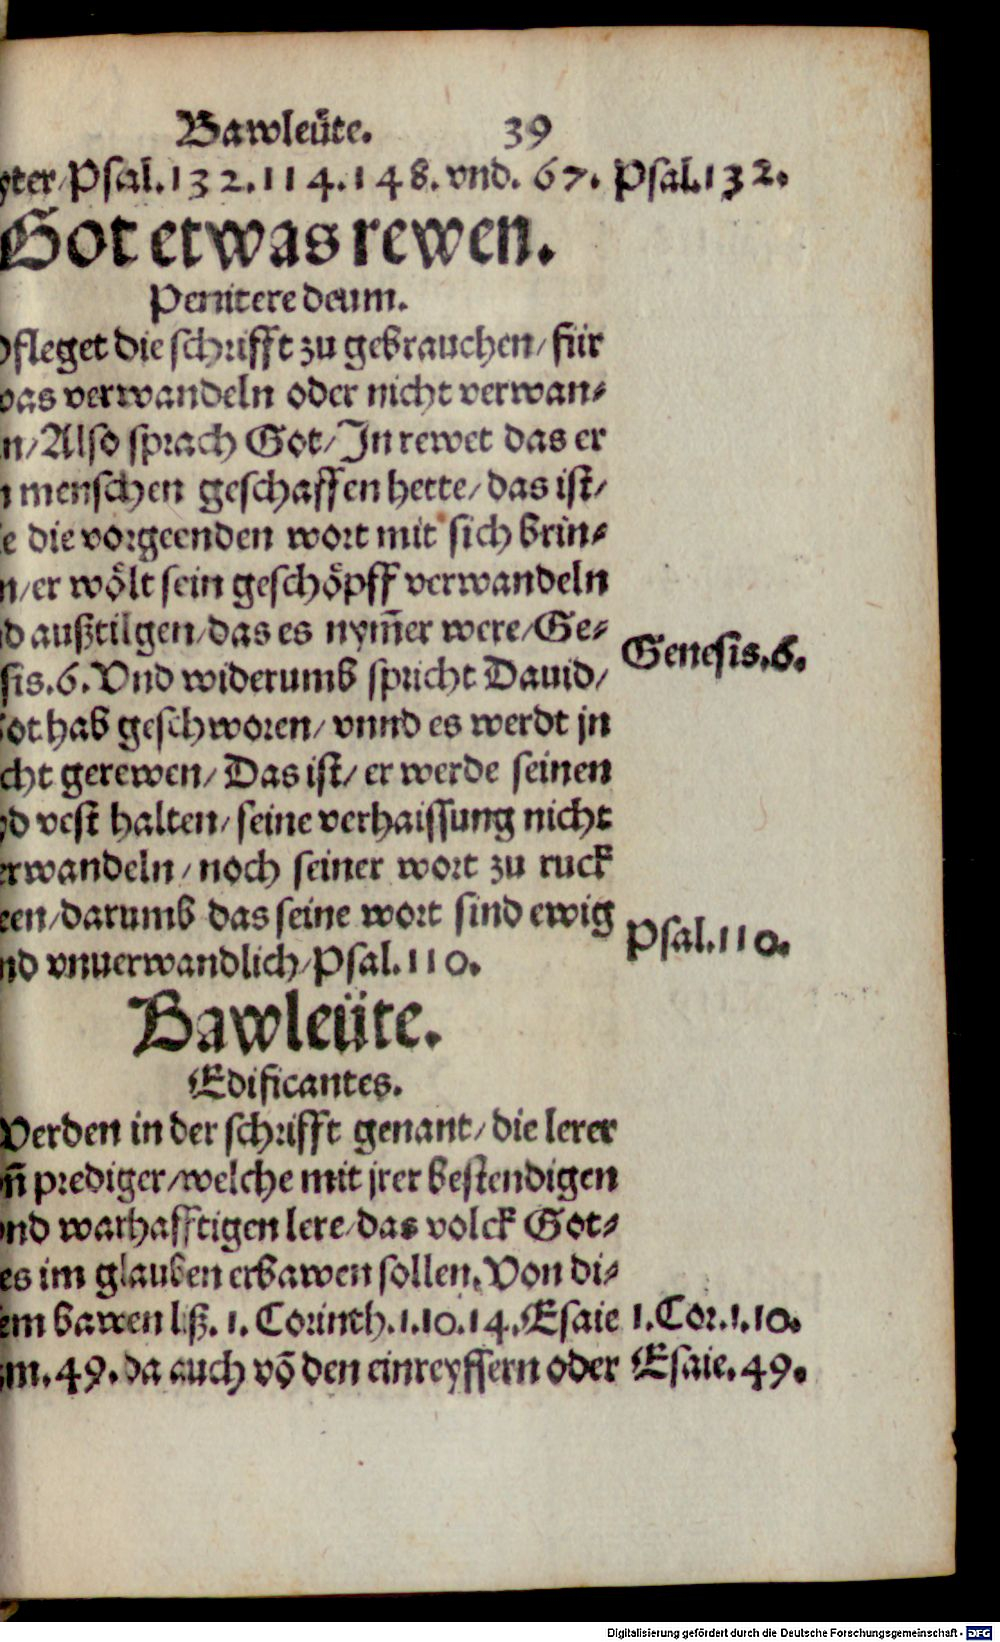 Bawleüte. 39
yter/Psal.132.114.148.vnd.67. Psal.132.
Got etwas rewen.
Penitere deum.
pfleget die schrifft zu gebrauchen/für
was verwandeln oder nicht verwan⸗
n/Also sprach Got/Jn rewet das er
n menschen geschaffen hette/das ist/
ie die vorgeenden wort mit sich brin⸗
n/er wölt sein geschöpff verwandeln
nd außtilgen/das es nym̃er were/Ge⸗
Genesis.6.
sis.6.Vnd widerumb spricht Dauid/
Got hab geschworen/vnnd es werdt jn
cht gerewen/Das ist/er werde seinen
yd vest halten/seine verhaissung nicht
erwandeln/noch seiner wort zu ruck
een/darumb das seine wort sind ewig
Psal.110.
nd vnuerwandlich/Psal.110.
Bawleüte.
Edificantes.
Werden in der schrifft genant/die lerer
vñ prediger/welche mit jrer bestendigen
vnd warhafftigen lere/das volck Got⸗
es im glauben erbawen sollen.Von di⸗
sem bawen liß.1.Corinth.1.10.14.Esaie 1.Cor.1.10.
m.49.da auch võ den einreyssern oder Esaie.49.
Digitalisierung gefördert durch die Deutsche Forschungsgemeinschaft - DFG